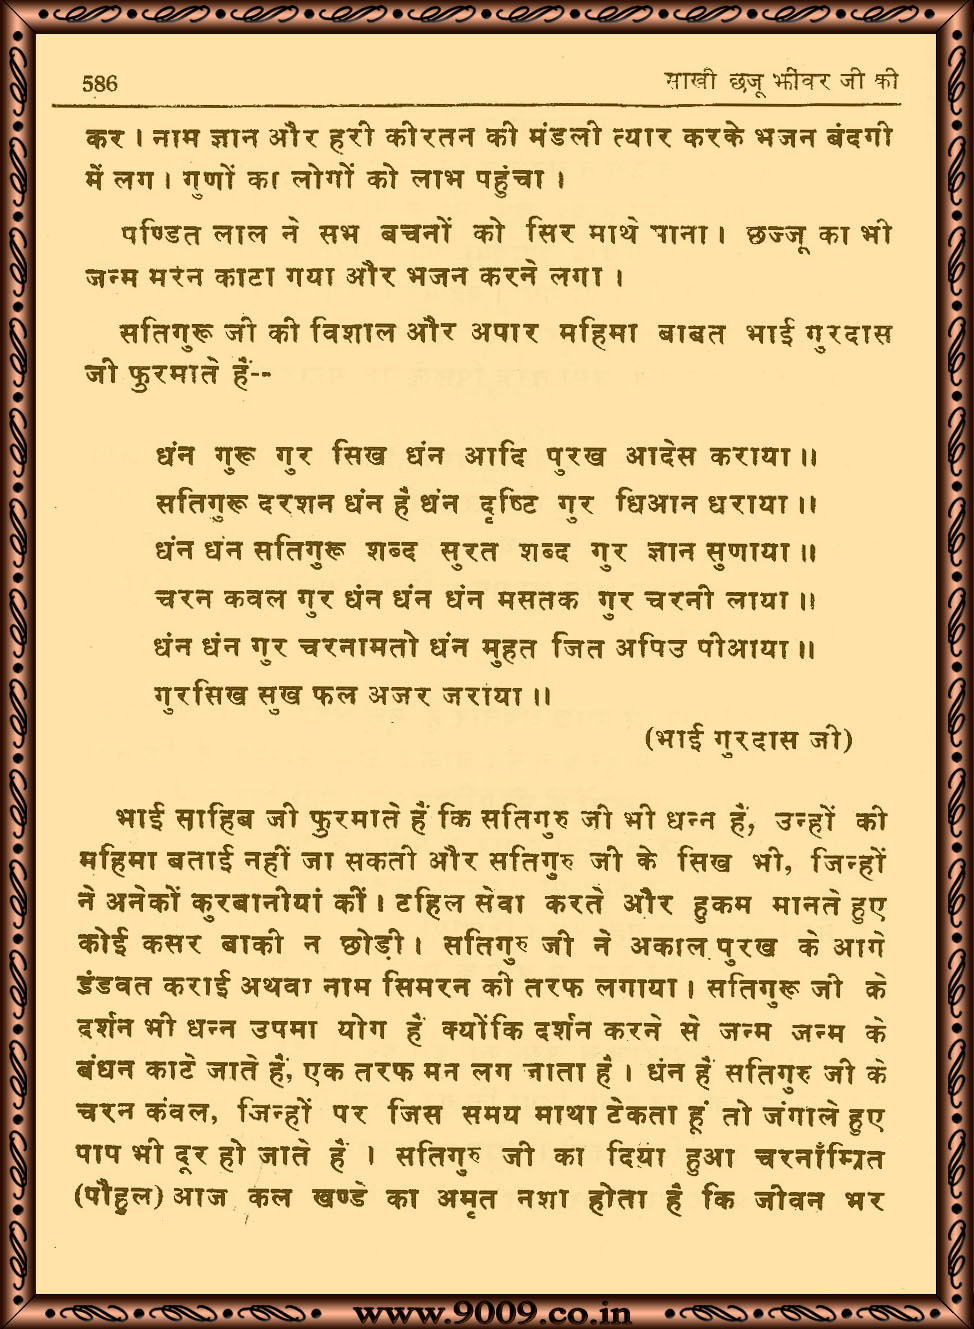 586 साखी छजू झींवर जी की
कर । नाम ज्ञान और हरी कीरतन की मंडली त्यार करके भजन बंदगी
में लग । गुणों का लोगों को लाभ पहुंचा ।
पण्डित लाल ने सभ बचनों को सिर माथे माना । छज्जू का भी
जन्म मरन काटा गया और भजन करने लगा ।
सतिगुरू जी की विशाल और अपार महिमा बाबत भाई गुरदास
जी फुरमाते हैं--
धंन गुरू गुर सिख धंन आदि पुरख आदेस कराया ॥
सतिगुरू दरशन धंन है धंन दृष्टि गुर धिआन धराया ॥
धंन धंन सतिगुरू शब्द सुरत शब्द गुर ज्ञान सुणाया ॥
चरन कवल गुर धंन धंन धंन मसतक गुर चरनी लाया ॥
धंन धंन गुर चरनामतो धंन मुहत जित अपिउ पीआया ॥
गुरसिख सुख फल अजर जराया ॥
(भाई गुरदास जी)
भाई साहिब जी फुरमाते हैं कि सतिगुरु जी भी धन्न हैं, उन्हों की
महिमा बताई नहीं जा सकती और सतिगुरु जी के सिख भी, जिन्हों
ने अनेकों कुरबानीयां कीं । टहिल सेवा करते और हुकम मानते हुए
कोई कसर बाकी न छोड़ी । सतिगुरु जी ने अकाल पुरख के आगे
डंडवत कराई अथवा नाम सिमरन की तरफ लगाया । सतिगुरू जी के
दर्शन भी धन्न उपमा योग हैं क्योंकि दर्शन करने से जन्म जन्म के
बंधन काटे जाते हैं, एक तरफ मन लग जाता है । धंन हैं सतिगुरु जी के
चरन कंवल, जिन्हों पर जिस समय माथा टेकता हूं तो जंगाले हुए
पाप भी दूर हो जाते हैं । सतिगुरु जी का दिया हुआ चरनाँम्रित
(पौहुल) आज कल खण्डे का अमृत नशा होता है कि जीवन भर
www.9009.co.in